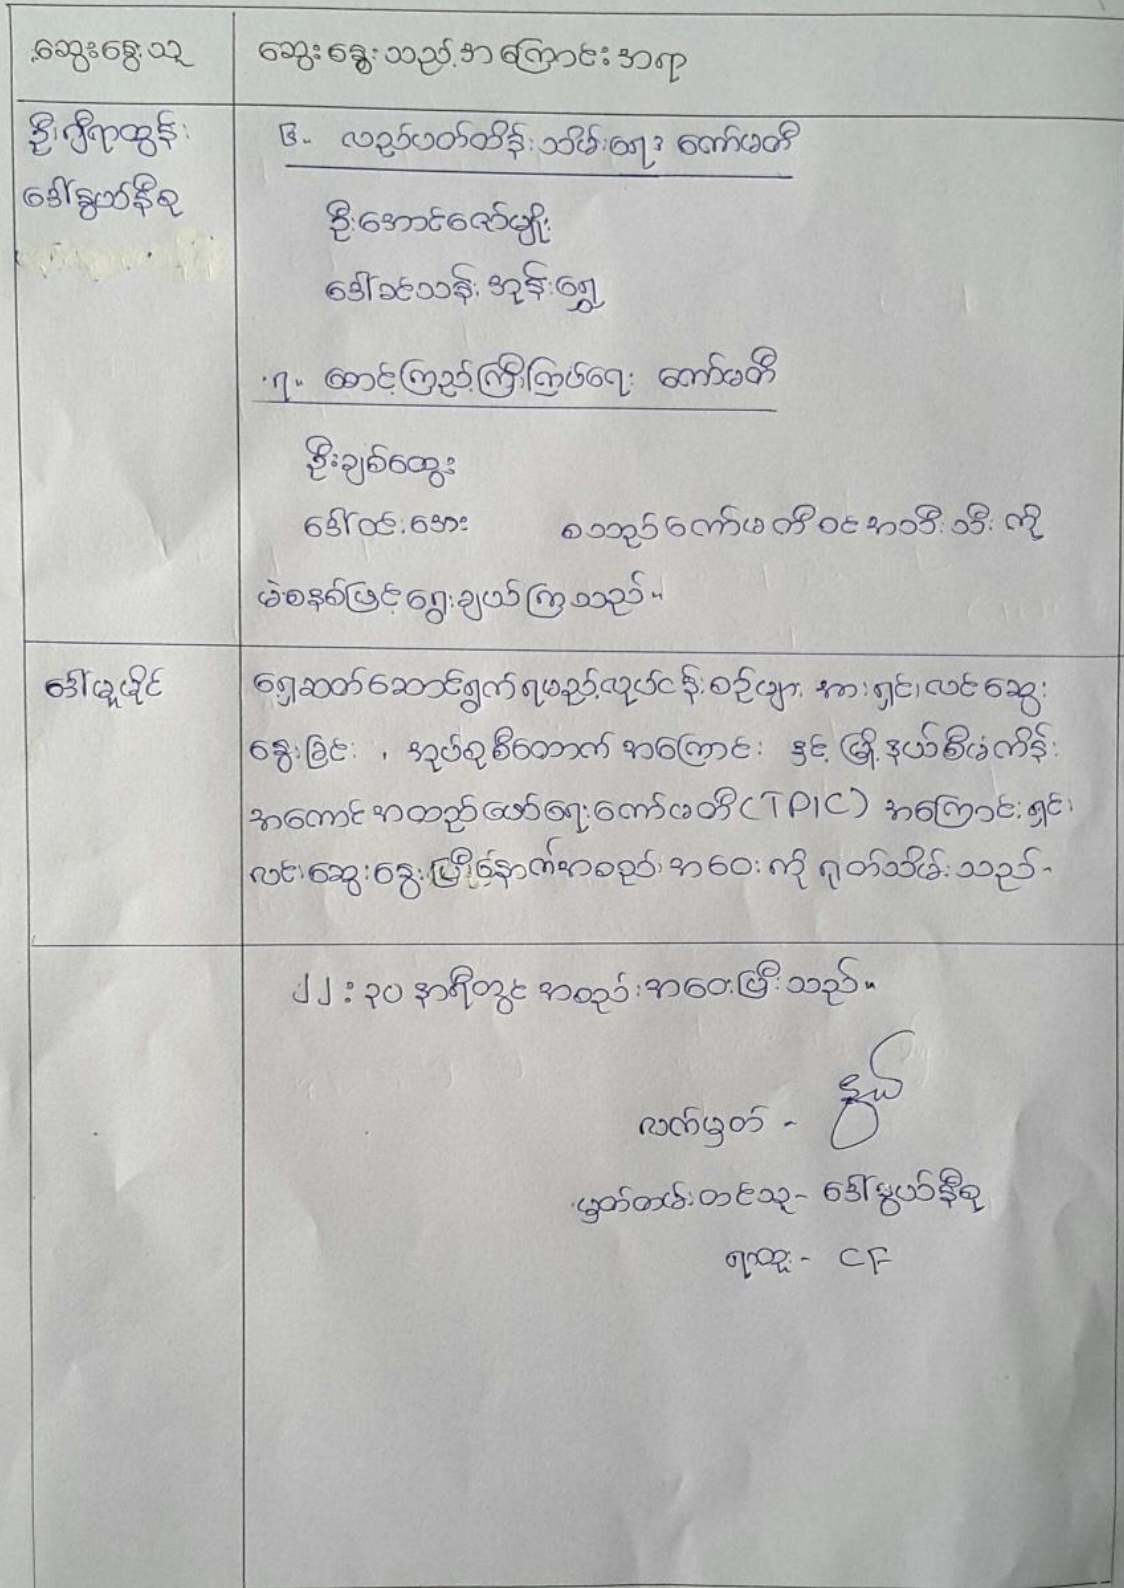 ဆွေးနွေးသူ
ဆွေးနွေးသည့်အကြောင်းအရာ
ဦးဂျီရာထွန်း
ဒေါ်နွယ်နီစု
၆။ လည်ပတ်ထိန်းသိမ်းရေး ကော်မတီ
ဦးအောင်ဇော်မျိုး
ဒေါ်ခင်သန်းအုန်းရွှေ
၇။ စောင့်ကြည့်ကြီးကြပ်ရေး ကော်မတီ
ဦးချစ်ထွေး
ဒေါ်ထင်းအေး စသည့်ကော်မတီဝင်အသီးသီးကို
မဲစနစ်ဖြင့်ရွေးချယ်ကြသည်။
ဒေါ်မူမိုင်
ရှေ့ဆက်ဆောင်ရွက်ရမည့်လုပ်ငန်းစဉ်များအားရှင်းလင်းဆွေး
နွေးခြင်း ၊ အုပ်စုစီတောက်အကြောင်း နှင့် မြို့နယ်စီမံကိန်း
အကောင်အထည်ဖော်ရေးကော်မတီ(TPIC) အကြောင်းရှင်း
လင်းဆွေးနွေးပြီးနောက်အစည်းအဝေးကို ရုတ်သိမ်းသည်-
၂၂:၃၀ နာရီတွင် အစည်းအဝေးပြီးသည်။
လက်မှတ် - နွယ်
မှတ်တမ်းတင်သူ- ဒေါ်နွယ်နီစု
ရာထူး- CF